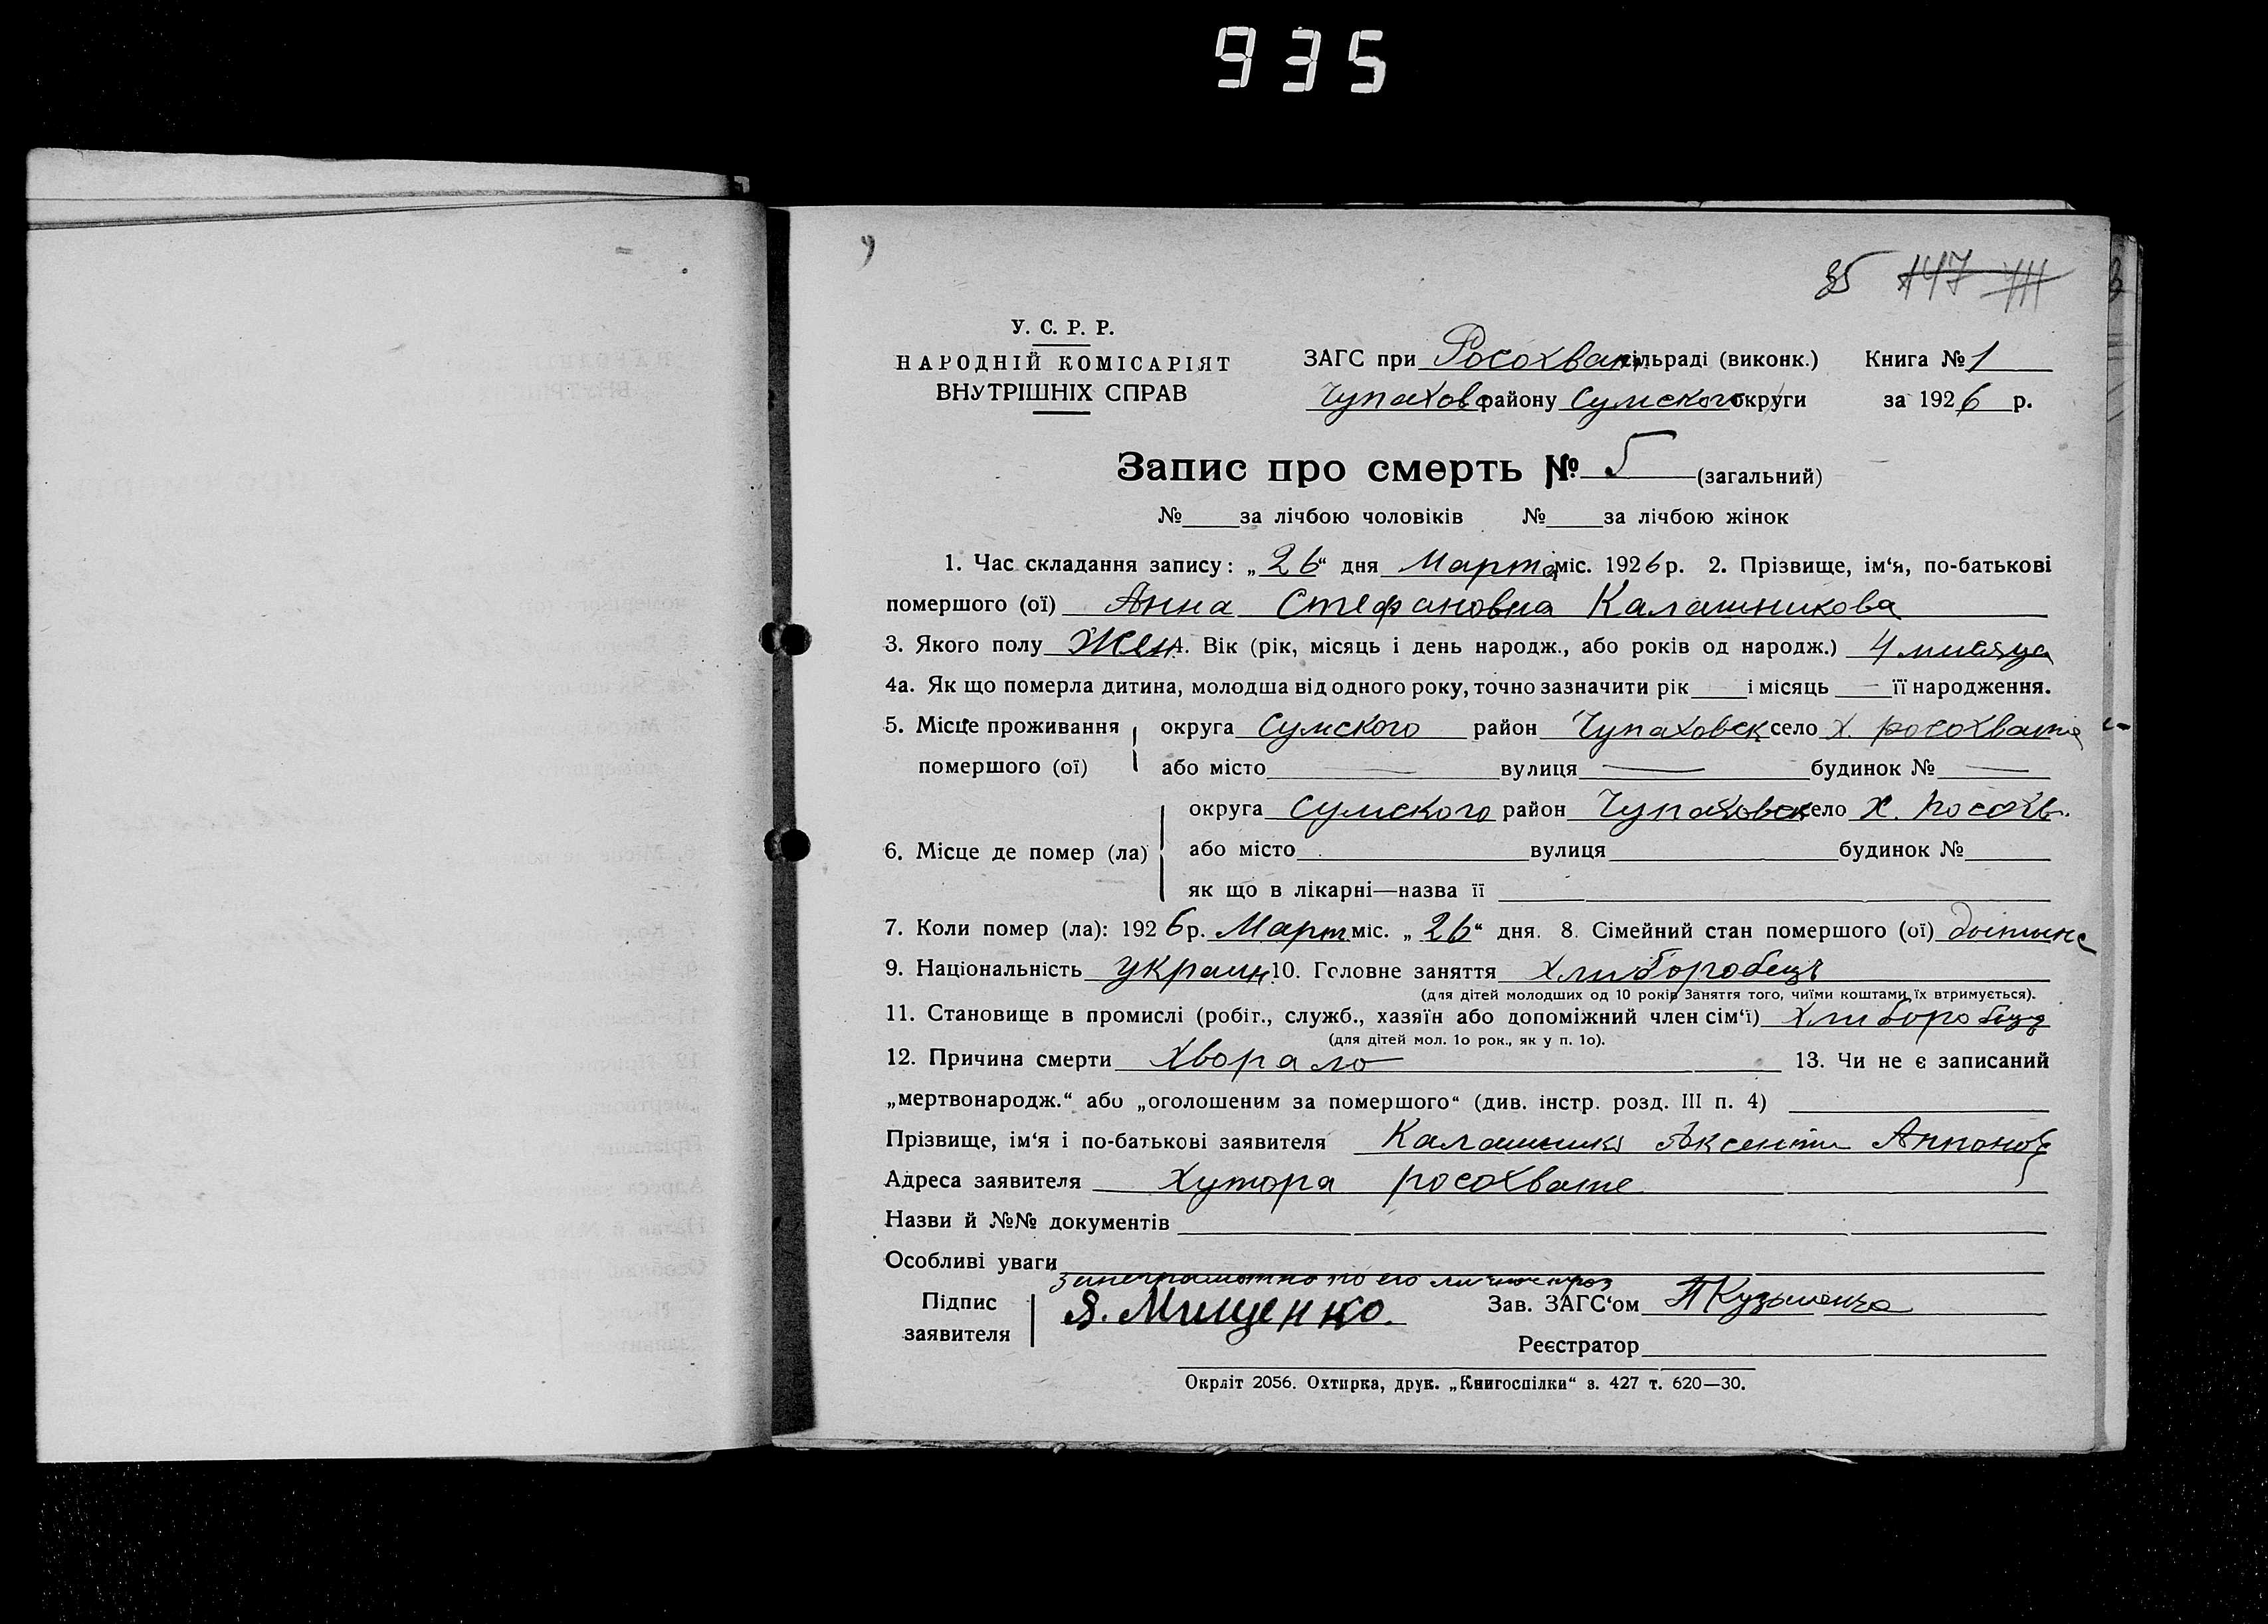 935
85 147
У. С. Р. Р.
НАРОДНІЙ КОМІСАРІЯТ
ВНУТРІШНІХ СПРАВ
ЗАГС при Росохват сільраді (виконк.) Книга № 1
Чупахов району Сумского округи за 1926 р.
Запис про смерть № 5 (загальний)
№ за лічбою чоловіків № за лічбою жінок
1. Час складання запису: „26“ дня Марта міс. 1926 р. 2. Прізвище, ім‘я, по-батькові
помершого (ої) Анна Стефановна Калашникова
3. Якого полу Жен 4. Вік (рік, місяць і день народж., або років од народж.) 4 мисяца
4а. Як що померла дитина, молодша від одного року, точно зазначити рік і місяць — її народження.
5. Місце проживання округа Сумского район Чупаховск село х. росохвате
помершого (ої) або місто — вулиця — будинок № —
округа Сумского район Чупаховск село х. росохв.
6. Місце де помер (ла) або місто вулиця будинок №
як що в лікарні—назва її
7. Коли помер (ла): 1926 р. Март міс. „26“ дня. 8. Сімейний стан помершого (ої)
9. Національність украин 10. Головне заняття хлиборобець
(для дітей молодших од 10 років заняття того, чиїми коштами їх втримується).
11. Становище в промислі (робіт., служб., хазяїн або допоміжний член сім‘ї)
(для дітей мол. 1о рок., як у п. 1о).
12. Причина смерти хворало 13. Чи не є записаний
„мертвонародж.“ або „оголошеним за помершого“ (див. інстр. розд. III п. 4)
Прізвище, ім‘я і по-батькові заявителя Калашник Аксенти
Адреса заявителя Хутора росохвате
Назви й №№ документів
Особливі уваги
за неграмотно по его личное проз
Підпис Я. Мищенко. Зав. ЗАГС‘ом П Кузьменко
заявителя
Реєстратор
Окрліт 2056. Охтирка, друк. „Книгоспілки“ з. 427 т. 620—30.